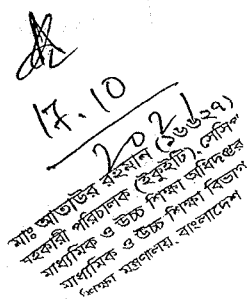 17.10
2021
মোঃ আতাউর রহমান (১৬৬২৭)
সহকারী পরিচালক (ইকুইটি), সেসিপ
মাধ্যমিক ও উচ্চ শিক্ষা অধিদপ্তর
মাধ্যমিক ও উচ্চ শিক্ষা বিভাগ
শিক্ষা মন্ত্রণালয়, বাংলাদেশ